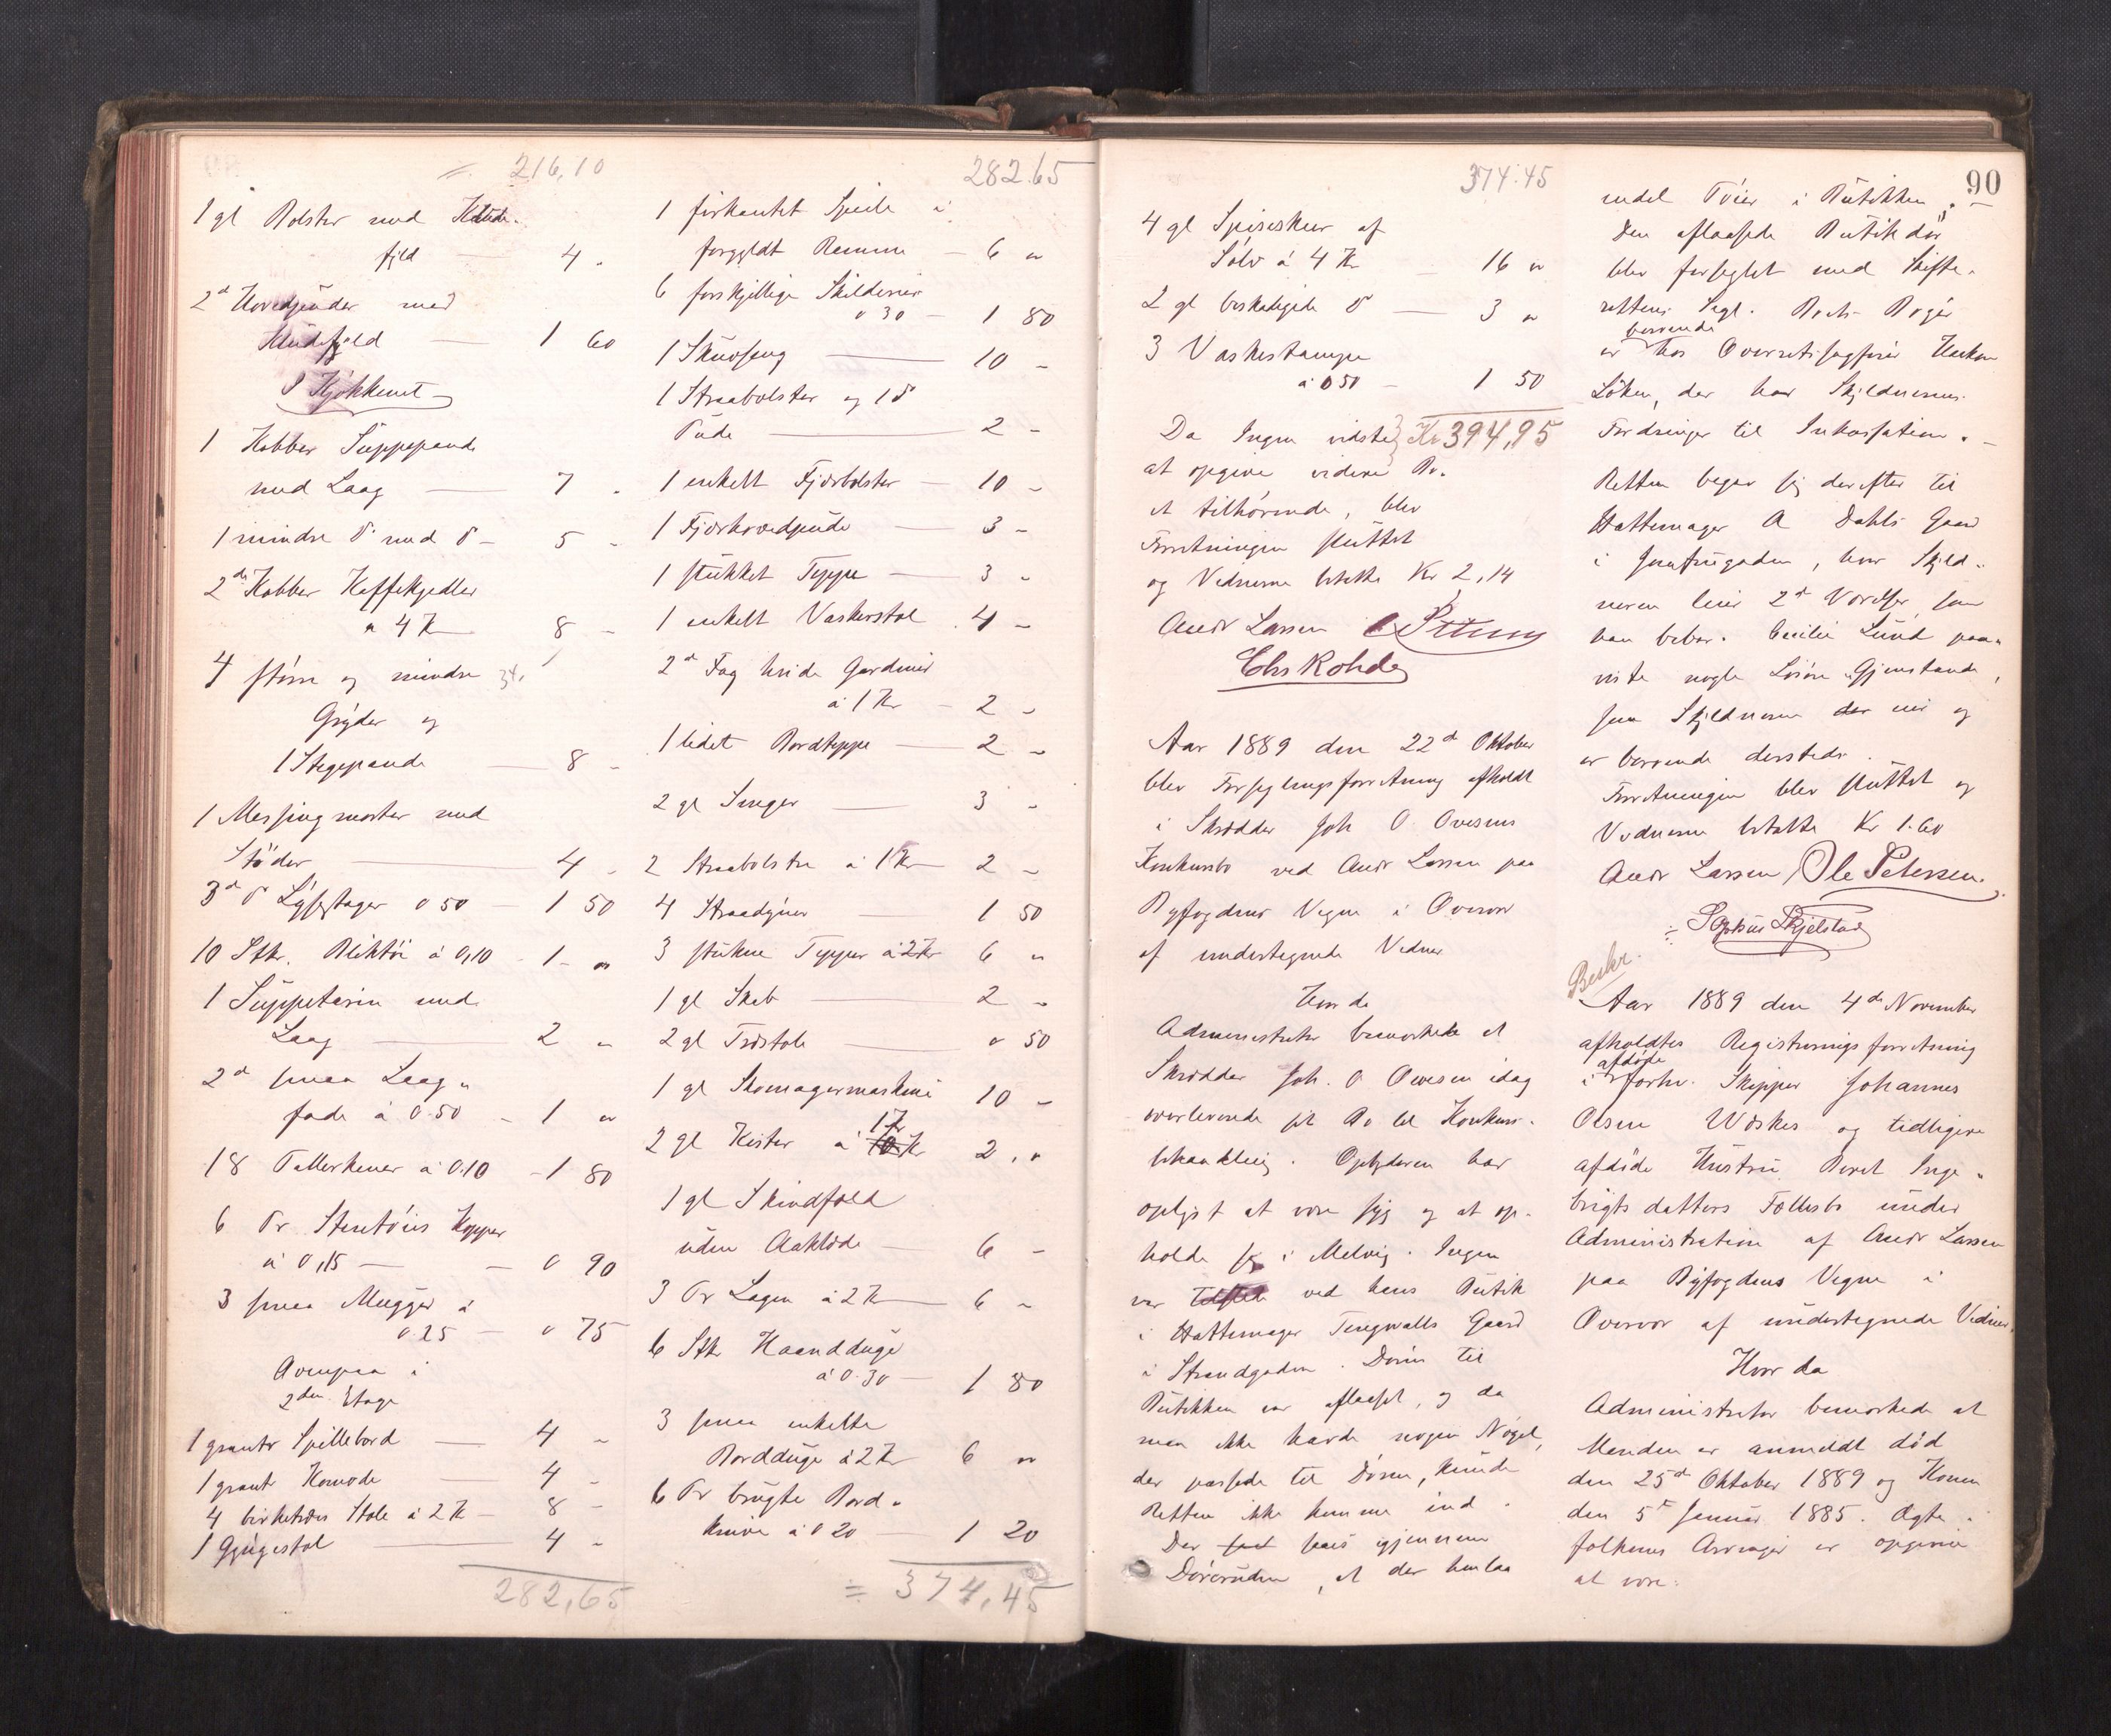 = 216,10
1 gl Bolster med Klude-
fyld — 4 -
2 d Hovedpuder med
Kludefyld — 1 60
I Kjøkkenet
1 Kobber Suppepande
med Laag — 7 -
1 mindre d° med d° — 5 -
2 de Kobber Kaffekjedler
a 4 Kr 8 -
4 større og mindre
Gryder og
1 Stegepande — 8 -
1 Messingmorter med
Støder — 4 -
3 d d° Lysestager 0 50 — 1 50
10 Stkr. Bliktøi á 0,10 - 1 - "
1 Suppeterin med
Laag — 2 "
2 d smaa Laag-
fade á 0.50 - 1 "
18 Tallerkener á 0.10 - 1 80
6 Pr Stentøis Kopper
á 0,15 — - 0 90
3 smaa Mugger á
0.25 — 0 75
Ovenpaa i
2den Etage
1 grant Spillebord — 4 -
1 grant Komode — 4 -
4 birketræs Stole á 2 Kr — 8 -
1 Gyngestol — 4 -
282,65
282.65
1 firkantet Speile i
forgyldt Ramme — 6 "
6 forskjellige Skilderier
0 30 — 1 80
1 Skuvseng — 10 -
1 Straabolster og 1 d°
Pude — 2 -
1 enkelt Fjærbolster — 10 -
1 Fjærhovedpude — 3 -
1 stukket Teppe — 3 -
1 enkelt Vaskerstol 4 -
2 d Fag hvide Gardiner
á 1 Kr — 2 -
1 lidet Bordteppe — 2 -
2 gl Senger — 3 -
2 Straabolstre á 1 Kr — 2 -
4 Straadyner — 1 50
3 stukne Tepper á 2 Kr 6 "
1 gl Skab — 2 -
2 gl Træstole — 0 50
1 gl Skomagermaskine 10 -
2 gl Kister á 1 Kr 2 . "
1 gl Skindfæld
uden Aaklæde — 6 -
3 Pr Lagen á 2 Kr — 6 -
6 Stkr Haandduge
á 0.30 — 1 80
3 smaa enkelte
Bordduge á 2 Kr 6 "
6 Pr brugte Bord-
knive á 0 20 1 20
= 374,45
374.45
4 gl Spiseskeer af
Sølv á 4 Kr — 16 "
2 gl beskadigede d° — 3 "
3 Vaskestamper
á 0 50 — 1 50
Da Ingen vidste Kr 394,95
at opgive videre Bo-
et tilhørende, blev
Forretningen sluttet
og Vidnerne betalte Kr 2,14
Andr Larsen
Chs Rohde
Aar 1889 den 22 d Oktober
blev Forseglingsforretning afholdt
i Skrædder Joh O Ovesens
Konkursbo ved Andr Larsen paa
Byfogdens Vegne i Overvær
af undertegnede Vidner
Hvor da
Administrator bemærkede at
Skrædder Joh. O Ovesen idag
overleverede sit Bo til Konkurs-
behandling. Opbyderen har
oplyst at være syg og at op-
holde sig i Melvig. Ingen
var tilstede ved hans Butik
i Hattemager Tengwalls Gaard
i Strandgaden. Døren til
Butikken var aflaaset, og da
man ikke havde nogen Nøgel,
der passede til Døren, kunde
Retten ikke komme ind.
Der saaes igjennem
Dørruden, at der henlaa
90
endel Tøier i Butikken. -
Den aflaasede Butikdør
blev forseglet med Skifte-
rettens Segl. Boets Bøger
er beroende hos Overretssagfører Haakon
Löken, der har Skyldnerens
Fordringer til Inkassation. -
Retten begav sig derefter til
Hattemager A Dahls Gaard
i Jomfrugaden, hvor Skyld-
neren leier 2 d Værelser som
han bebor. Cecilie Lund paa-
viste nogle Løsøre Gjenstande,
som Skyldneren eier og
er beroende dersteds.
Forretningen blev sluttet og
Vidnerne betalte Kr 1.60
Andr Larsen Ole Petersen.
Sophus Skjelstad
Beskr.
Aar 1889 den 4 de November
afholdtes Registreringsforretning
i afdøde forhv. Skipper Johannes
Olsen Woskes og tidligere
afdøde Hustru Beret Inge-
brigtsdatters Fællesbo under
Administration af Andr Larsen
paa Byfogdens Vegne i
Overvær af undertegnede Vidner.
Hvor da
Administrator bemærkede at
Manden er anmeldt død
den 25 d Oktober 1889 og Konen
den 5 te Januar 1885. Ægte-
folkenes Arvinger er opgivne
at være: